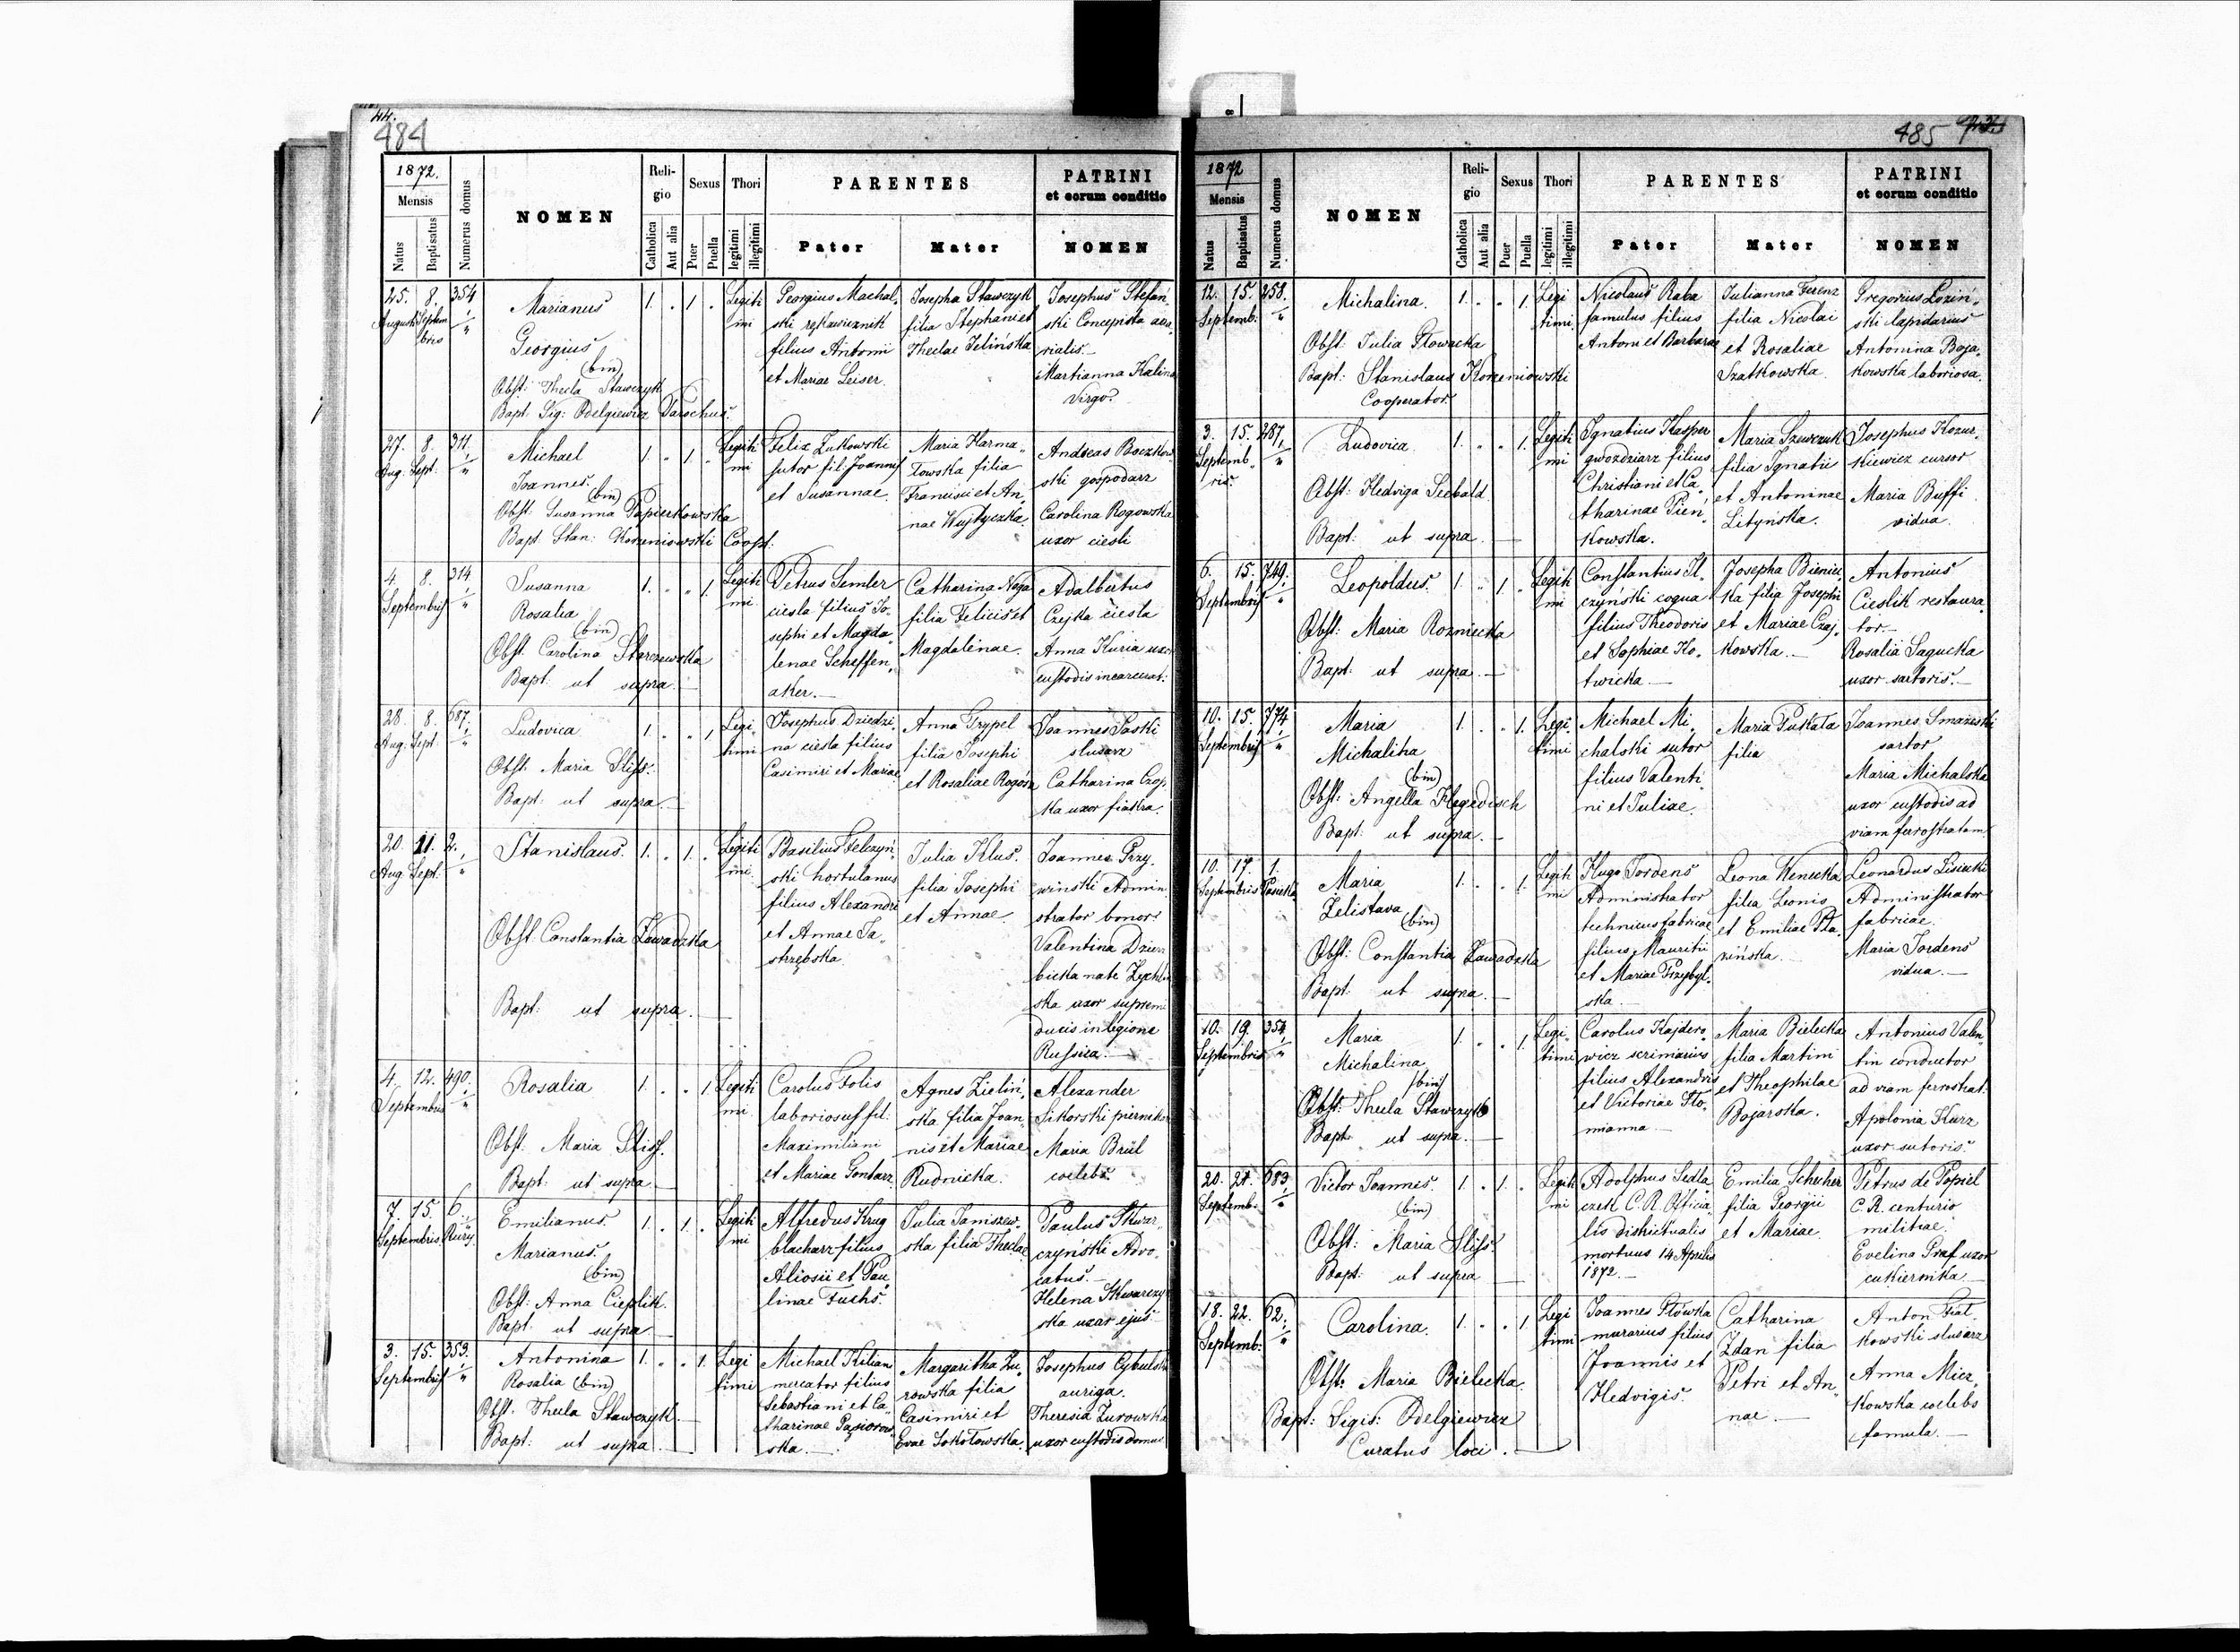 44.
484
1872.
Mensis
Natus
Baptisatus
Numerus domus
NOMEN
Reli-
gio
Catholica
Aut alia
Sexus
Puer
Puella
Thori
legitimi
illegitimi
PARENTES
Pater
Mater
PATRINI
et eorum conditio
NOMEN
25. 8. 354
Augusti Septem
bris
Marianus
Georgius
(bin)
Obst: Thecla Stawczyk
Bapt. Sig: Odelgiewicz Parochus.
1. . 1 .
Legiti
mi
Georgius Machal-
ski rękawicznik
filius Antonii
et Mariae Leiser.
Josepha Stawczyk
filia Stephani et
Theclae Zelińska
Josephus Stefań-
ski Concepista aera
rialis.
Martianna Kalina
Virgo.
27. 8. 311.
Aug. Sept.
Michael
Joannes.
(bin)
Obst: Susanna Papierkowska
Bapt. Stan: Korzeniowski Coop.
1. . 1 .
Legiti
mi
Felix Zukowski
sutor fil. Joannis
et Susannae.
Maria Harma-
towska filia
Francisci et An-
nae Wujtyczka.
Andreas Boczkow-
ski gospodarz
Carolina Rogowska
uxor ciesli
4. 8. 314
Septembris
Susanna
Rosalia
(bin)
Obst. Carolina Starczewska
Bapt. ut supra.
1. . . 1
Legiti
mi
Petrus Semler
ciesla filius Jo-
sephi et Magda-
lenae Scheffen-
aker.
Catharina Noga
filia Felicis et
Magdalenae.
Adalbertus
Czejka ciesla
Anna Kuria uxor
custodis incarcerat.
28. 8. 687.
Aug. Sept.
Ludovica
Obst. Maria Sliss.
Bapt: ut supra.
1. . . 1
Legi-
timi
Josephus Dziedzi-
na ciesla filius
Casimiri et Mariae
Anna Grypel
filia Josephi
et Rosaliae Rogosz
Joannes Paski
slusarz
Catharina Czop-
ka uxor fiakra.
20. 11. 2.
Aug. Sept.
Stanislaus.
Obst. Constantia Zawadzka
Bapt: ut supra.
1. . 1 .
Legiti
mi
Basilius Felczyń-
ski hortulanus
filius Alexandri
et Annae Ja-
strzębska
Julia Klus.
filia Josephi
et Annae
Joannes Przy-
winski Admin
strator bonor.
Valentina Dzier
bicka nata Zychlin
ska uxor supremi
ducis in legione
Russica.
4. 12. 490.
Septembris
Rosalia
Obst. Maria Sliss.
Bapt: ut supra
1. . . 1
Legiti
mi
Carolus Folis
laboriosus fil.
Maximiliani
et Mariae Gontarz
Agnes Zieliń-
ska filia Joan-
nis et Mariae
Rudnicka.
Alexander
Sikorski piernikar
Maria Brül
coelebs.
7. 15. 6.
Septembris Rury.
Emilianus.
Marianus.
(bin)
Obst: Anna Cieplik.
Bapt. ut supra
1. . 1 .
Legiti
mi
Alfredus Krug
blacharz filius
Aliosii et Pau
linae Fuchs.
Julia Janiszew-
ska filia Theclae
Paulus Skwar-
czyński Advo-
catus.
Helena Skwarczyń
ska uxor ejus.
3. 15. 353.
Septembris
Antonina
Rosalia (bin)
Obst. Thecla Stawczyk.
Bapt. ut supra
1. . . 1.
Legi
timi
Michael Kilian
mercator filius
Sebastiani et Ca-
tharinae Pąsiorow-
ska.
Margaritha Zu-
rowska filia
Casimiri et
Evae Sokołowska.
Josephus Cybulski
auriga.
Theresia Zurowska
uxor custodis domus
485
1872
Mensis
Natus
Baptisatus
Numerus domus
NOMEN
Reli-
gio
Catholica
Aut alia
Sexus
Puer
Puella
Thori
legitimi
illegitimi
PARENTES
Pater
Mater
PATRINI
et eorum conditio
NOMEN
12. 15. 258.
Septemb.
Michalina.
Obst: Julia Słowacka
Bapt: Stanislaus Korzeniowski
Cooperator.
1. . . 1.
Legi
timi
Nicolaus Raba
famulus filius
Antoni et Barbarae
Julianna Ferenz
filia Nicolai
et Rosaliae
Szatkowska.
Gregorius Loziń-
ski lapidarius
Antonina Boja-
kowska laboriosa.
3. 15. 487.
Septemb-
ris.
Ludovica.
Obst: Hedviga Seebald.
Bapt: ut supra
1. . . 1.
Legiti
mi
Ignatius Kasper
gwozdziarz filius
Christiani et Ca-
tharinae Pień-
kowska.
Maria Szewczuk
filia Ignatii
et Antoninae
Lityńska.
Josephus Kozur-
kiewicz cursor
Maria Buffi
vidua.
6. 15. 749.
Septembris
Leopoldus.
Obst: Maria Rozniecka
Bapt: ut supra.
1. . 1 .
Legiti
mi
Constantius Il-
czyński coqua
filius Theodoris
et Sophiae Ko-
twicka.
Josepha Bienic-
ka filia Josephi
et Mariae Czaj-
kowska.
Antonius
Cieslik restaura-
tor.
Rosalia Sagucka
uxor sartoris.
10. 15. 774
Septembris
Maria
Michalina
(bin)
Obst: Angella Hegedisch
Bapt: ut supra.
1. . . 1.
Legi-
timi
Michael Mi-
chalski sutor
filius Valenti
ni et Juliae.
Maria Pukała
filia
Joannes Smażeski
sartor
Maria Michalska
uxor custodis ad
viam ferostratam
10. 17. 1.
Septembris Pasieka
Maria
Zelislava
(bin)
Obst: Constantia Zawadzka
Bapt: ut supra.
1. . . 1.
Legiti
mi
Hugo Jordens
Administrator
technicus fabricae
filius Mauritii
et Mariae Przybyl-
ska.
Leona Wenicka
filia Leonis
et Emiliae Pła-
zińska.
Leonardus Lisiecki
Administrator
fabricae.
Maria Jordens
vidua.
10. 19. 354.
Septembris
Maria
Michalina
(bin)
Obst: Thecla Stawczyk
Bapt: ut supra.
1. . . 1
Legi-
timi
Carolus Kajdero-
wicz scriniarius
filius Alexandris
et Victoriae Sło-
mianna
Maria Bielecka
filia Martini
et Theophilae
Bojarska.
Antonius Valen-
tin conductor
ad viam ferrostrat.
Apolonia Kurz
uxor sutoris.
20. 21. 683
Septemb.
Victor Joannes.
(bin)
Obst: Maria Sliss.
Bapt: ut supra
1. . 1 .
Legiti
mi
Adolphus Sedla-
czek C. R. Officia-
lis districtualis
mortuus 14 Aprilis
1872.
Emilia Schecher
filia Georgii
et Mariae.
Petrus de Popiel
C. R. centurio
militiae.
Evelina Graf uxor
cukiernika.
18. 22. 62.
Septemb.
Carolina.
Obst: Maria Bielecka.
Bapt: Sigis: Odelgiewicz
Curatus loci.
1. . . 1
Legi
timi
Joannes Słówka
murarius filius
Joannis et
Hedvigis.
Catharina
Zdan filia
Petri et An-
nae.
Anton Fiał-
kowski slusarz
Anna Micz-
kowska coelebs
famula.